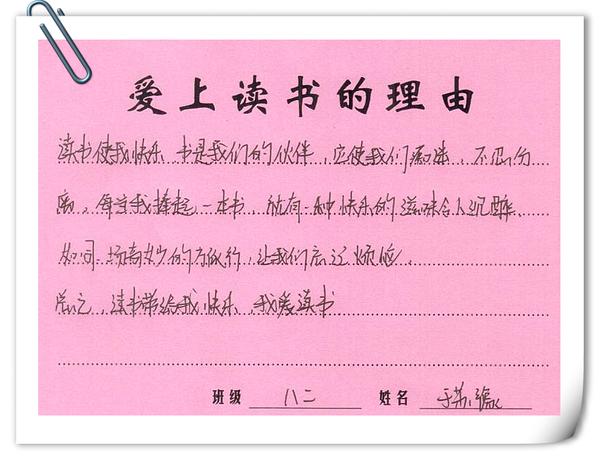 爱上读书的理由
读书使我快乐 书是我们的伙伴 它使我们 不
离 每当我捧起一本书 就有一种快乐的滋味令人沉醉
如同 场奇妙的 让我们忘记烦恼
总之 读书带给我快乐 我爱读书
班级 八二 姓名 于